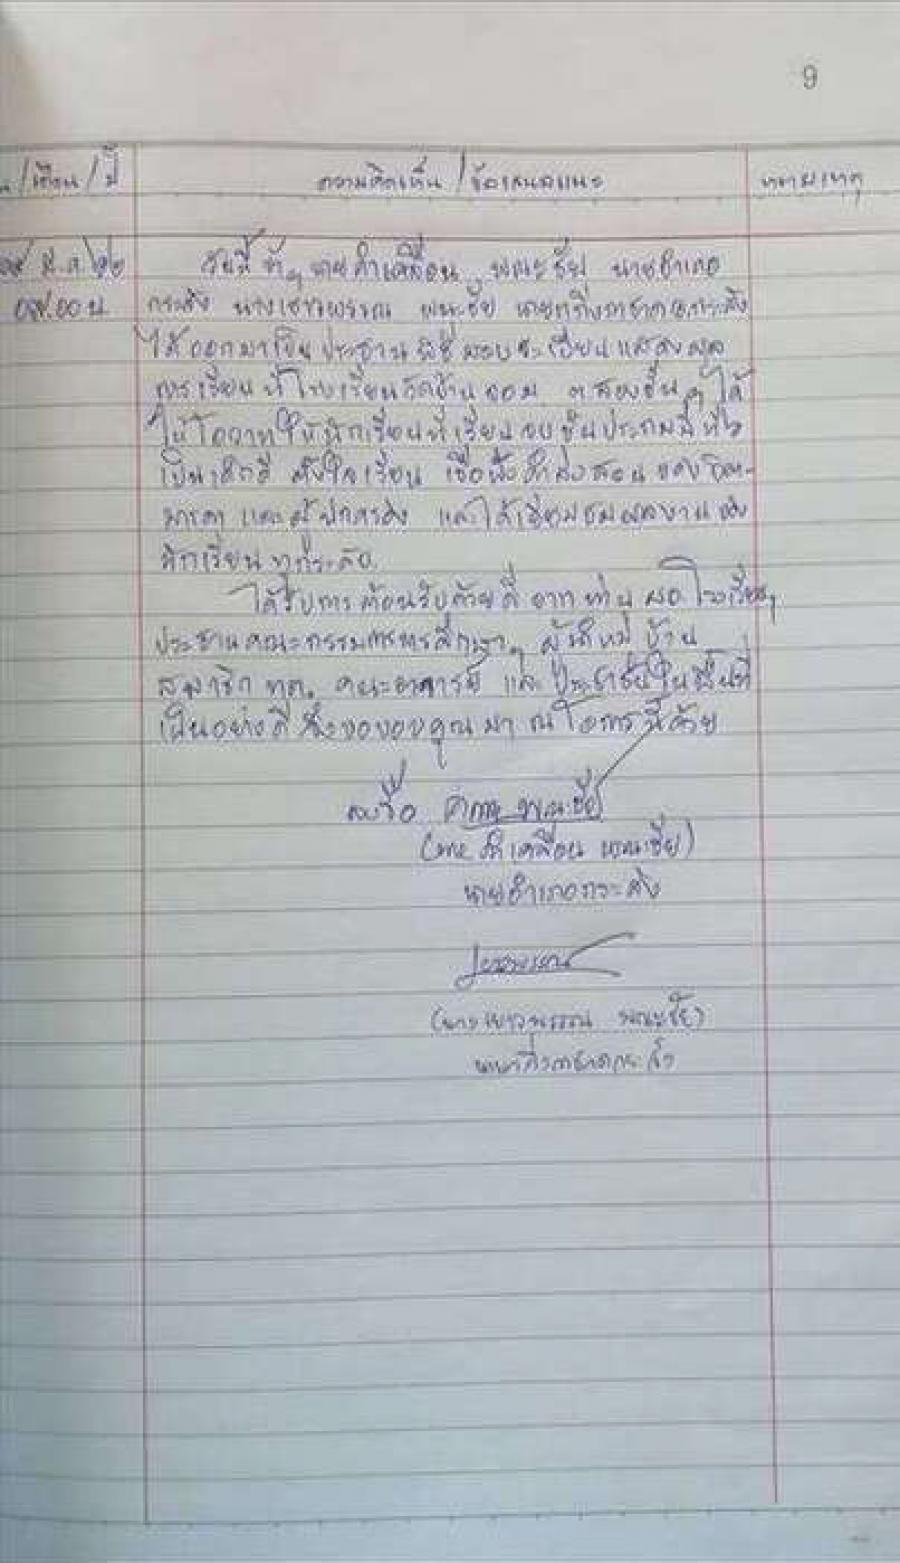 9
/เดือน/ปี ความคิดเห็น/ข้อเสนอแนะ หมายเหตุ
วันนี้ นายคำเคลื่อน พณะชัย นายอำเภอ
๐๙.๐๐ น กระสัง นางเยาวพรรณ พณะชัย นายกกิ่งกาชาดอ.กระสัง
ได้ออกมาเป็นประธานพิธีมอบทะเบียนแสดงผล
การเรียน ที่โรงเรียนวัดบ้าน
ให้โอวาทให้นักเรียนที่เรียนจบชั้นประถมปีที่ ๖
เป็นเด็กดี ตั้งใจเรียน เชื่อฟังคำสั่งสอนของบิดา-
มารดา และผู้ปกครอง และได้เยี่ยมชมผลงานของ
นักเรียนทุกระดับ
ได้รับการต้อนรับด้วยดี จากท่าน ผอ.โรงเรียน
ประธานคณะกรรมการการศึกษา ผู้ใหญ่บ้าน
สมาชิก คณะอาจารย์ และประชาชนในพื้นที่
เป็นอย่างดี จึงขอขอบคุณมา ณ โอกาสนี้ด้วย
ลงชื่อ
(นายคำเคลื่อน พณะชัย)
นายอำเภอกระสัง
เยาวพรรณ
(นางเยาวพรรณ พณะชัย)
นายกกิ่งกาชาดกระสัง